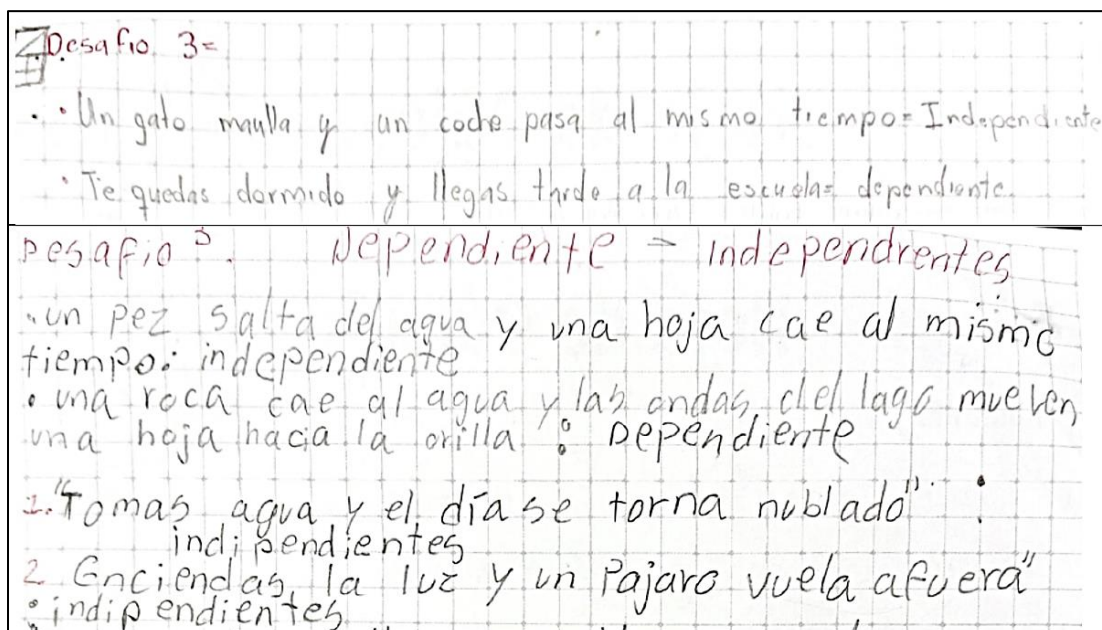 Desafio 3=
• Un gato maulla y un coche pasa al mismo tiempo= Independiente
• Te quedas dormido y llegas tarde a la escuela= dependiente.
Desafio 3. Dependiente - independientes
• un pez salta del agua y una hoja cae al mismo
tiempo: independiente
• una roca cae al agua y las ondas del lago mueven
una hoja hacia la orilla : Dependiente
1. "Tomas agua y el día se torna nublado" :
indipendientes
2 Enciendas la luz y un Pajaro vuela afuera"
: indipendientes